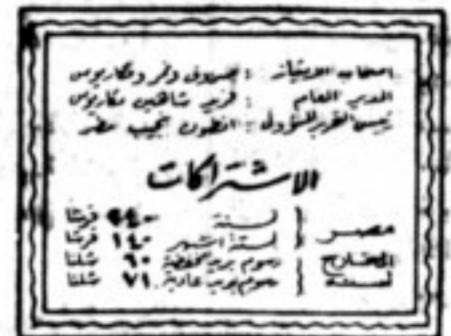 اصحاب الامتياز : صروف ونمر ومكاريوس
المدير العام : فريد شاهين مكاريوس
رئيس التحرير المسؤول : انطون نجيب مطر
الاشتراكات
مصر { لسنة ٢٤٠ قرشا
لستة اشهر ١٤٠ قرشا
للخارج لسنة { رسوم بريد مخفضة ٦٠ شلنا
رسوم بريد عادية ٧١ شلنا